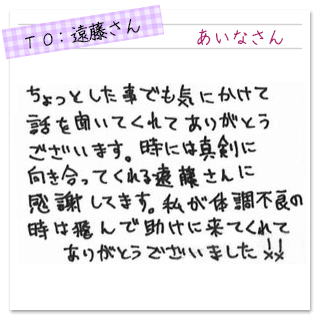 TO:遠藤さん
あいなさん
ちょっとした事でも気にかけて
話を聞いてくれてありがとう
ございます。時には真剣に
向き合ってくれる遠藤さんに
感謝してます。私が体調不良の
時は飛んで助けに来てくれて
ありがとうございました!!